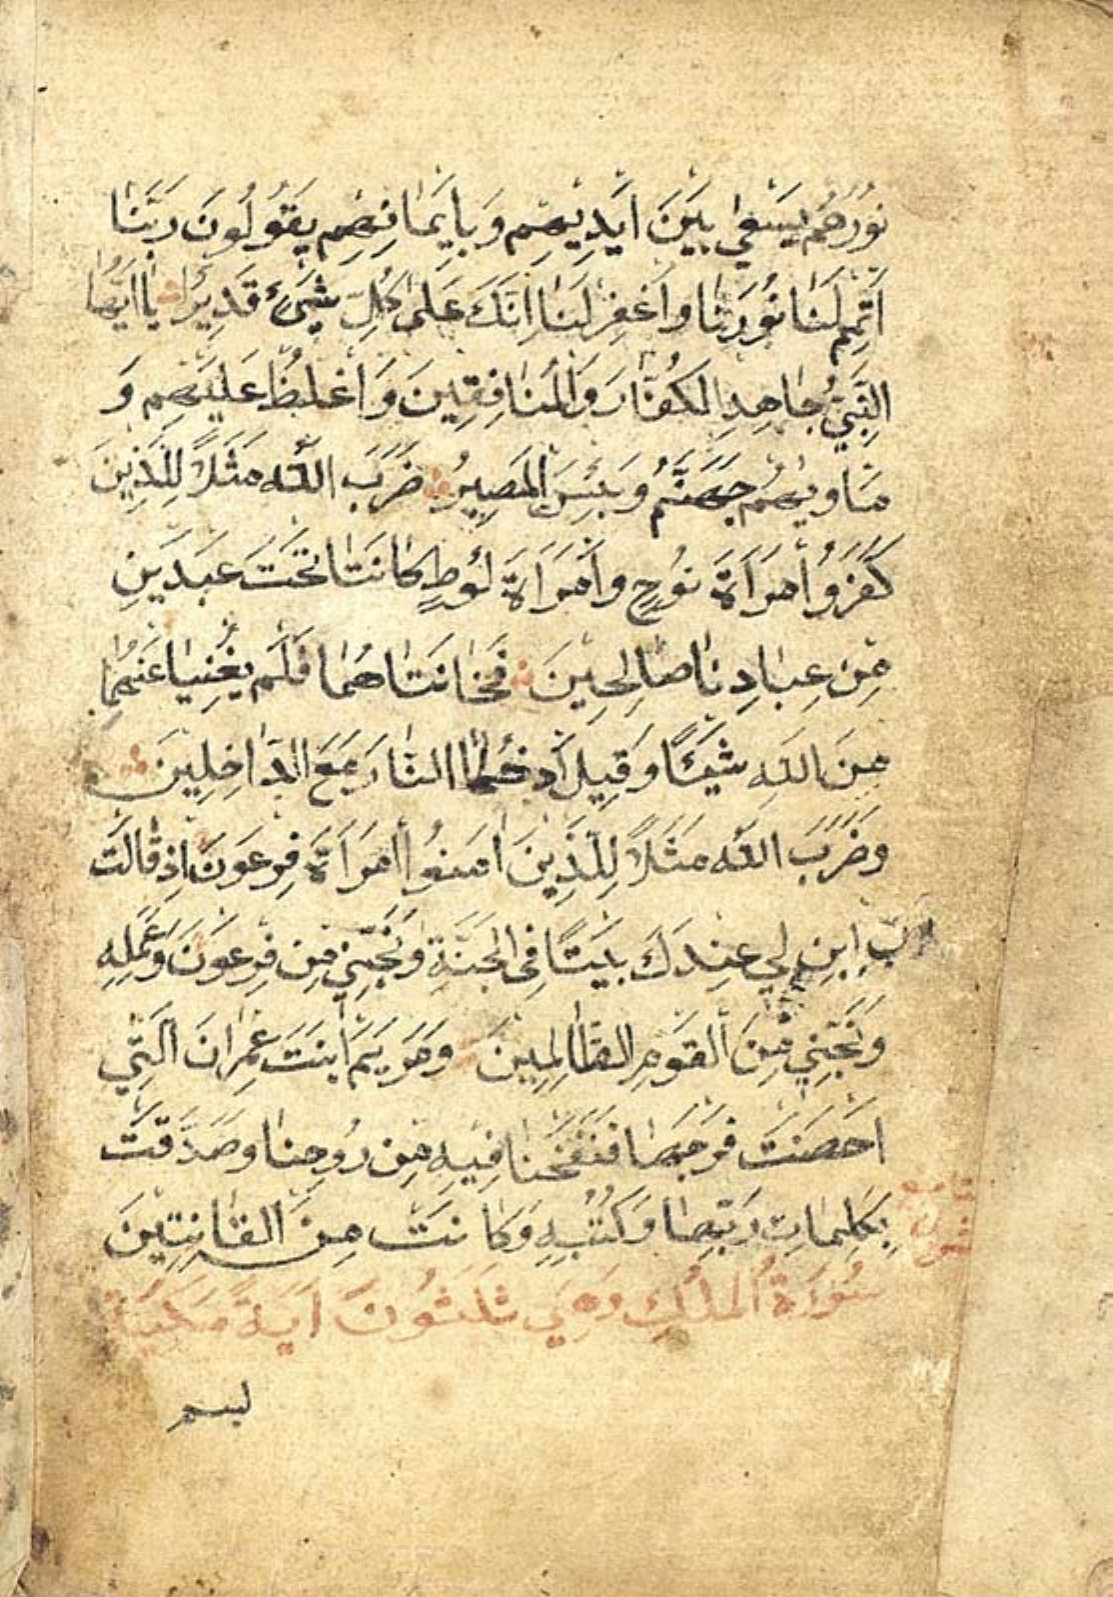 نُورُهُمْ يَسْعٰى بَيْنَ اَيْدِيهِمْ وَبِاَيْمَانِهِمْ يَقُولُونَ رَبَّنَا
اَتْمِمْ لَنَا نُورَنَا وَاغْفِرْ لَنَا اِنَّكَ عَلٰى كُلِّ شَيْءٍ قَدِيرٌ يَا اَيُّهَا
النَّبِيُّ جَاهِدِ الْكُفَّارَ وَالْمُنَافِقِينَ وَاغْلُظْ عَلَيْهِمْ وَ
مَاْوٰيهُمْ جَهَنَّمُ وَبِئْسَ الْمَصِيرُ ضَرَبَ اللّٰهُ مَثَلًا لِلَّذِينَ
كَفَرُوا امْرَاَةَ نُوحٍ وَامْرَاَةَ لُوطٍ كَانَتَا تَحْتَ عَبْدَيْنِ
مِنْ عِبَادِنَا صَالِحَيْنِ فَخَانَتَاهُمَا فَلَمْ يُغْنِيَا عَنْهُمَا
مِنَ اللّٰهِ شَيْئًا وَقِيلَ ادْخُلَا النَّارَ مَعَ الدَّاخِلِينَ
وَضَرَبَ اللّٰهُ مَثَلًا لِلَّذِينَ اٰمَنُوا امْرَاَةَ فِرْعَوْنَ اِذْ قَالَتْ
رَبِّ ابْنِ لِي عِنْدَكَ بَيْتًا فِي الْجَنَّةِ وَنَجِّنِي مِنْ فِرْعَوْنَ وَعَمَلِهِ
وَنَجِّنِي مِنَ الْقَوْمِ الظَّالِمِينَ وَمَرْيَمَ ابْنَتَ عِمْرَانَ الَّتِي
اَحْصَنَتْ فَرْجَهَا فَنَفَخْنَا فِيهِ مِنْ رُوحِنَا وَصَدَّقَتْ
بِكَلِمَاتِ رَبِّهَا وَكُتُبِهِ وَكَانَتْ مِنَ الْقَانِتِينَ
سُورَةُ الْمُلْكِ وَهِيَ ثَلٰثُونَ اٰيَةً مَكِّيَّةٌ
بسم